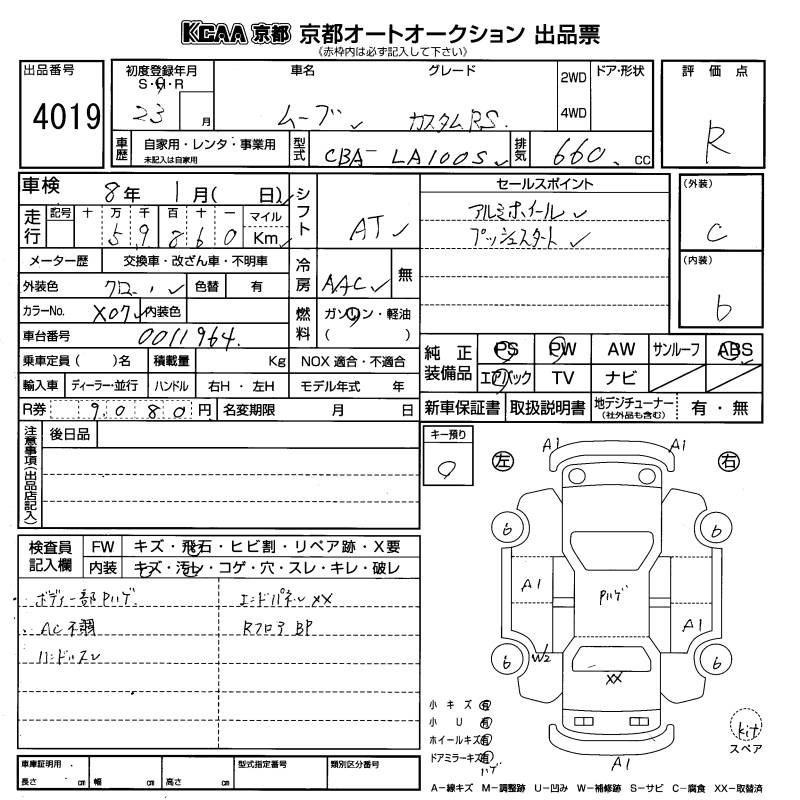 KCAA 京都 京都オートオークション 出品票
《赤枠内は必ず記入して下さい》
出品番号
4019
初度登録年月
S・H・R
23 月
車名 グレード
ムーブ カスタムRS
2WD
4WD
ドア・形状
評価点
R
車歴
自家用・レンタ・事業用
未記入は自家用
型式
CBA- LA100S
排気
660 cc
車検 8年 1月( 日)
走行
記号 十 万 千 百 十 一 マイル
5 9 8 6 0 Km
シフト
AT
セールスポイント
アルミホイール
プッシュスタート
(外装)
C
(内装)
b
メーター歴 交換車・改ざん車・不明車
冷房
AAC 無
外装色 クロ 色替 有
カラーNo. X07 内装色
燃料
ガソリン・軽油
( )
車台番号 0011964
乗車定員 ( )名 積載量 Kg NOX 適合・不適合
輸入車 ディーラー・並行 ハンドル 右H・左H モデル年式 年
R券 9080円 名変期限 月 日
純正装備品
PS PW AW サンルーフ ABS
エアバック TV ナビ
新車保証書 取扱説明書 地デジチューナー(社外品も含む) 有・無
注意事項(出品店記入)
後日品
キー預り
左 右
A1 A1
6 6
A1 Pハゲ A1
6 W2 6
XX
A1
検査員記入欄
FW キズ・飛石・ヒビ割・リペア跡・X要
内装 キズ・汚レ・コゲ・穴・スレ・キレ・破レ
ボディ一部Pハゲ エンドパネルXX
AC不調 Rフロア BP
ハンドルスレ
小キズ 有
小U 有
ホイールキズ 有
ドアミラーキズ 有
ハゲ
kit
スペア
車庫証明用
長さ cm 幅 cm 高さ cm
型式指定番号 類別区分番号
A−線キズ M−調整跡 U−凹み W−補修跡 S−サビ C−腐食 XX−取替済